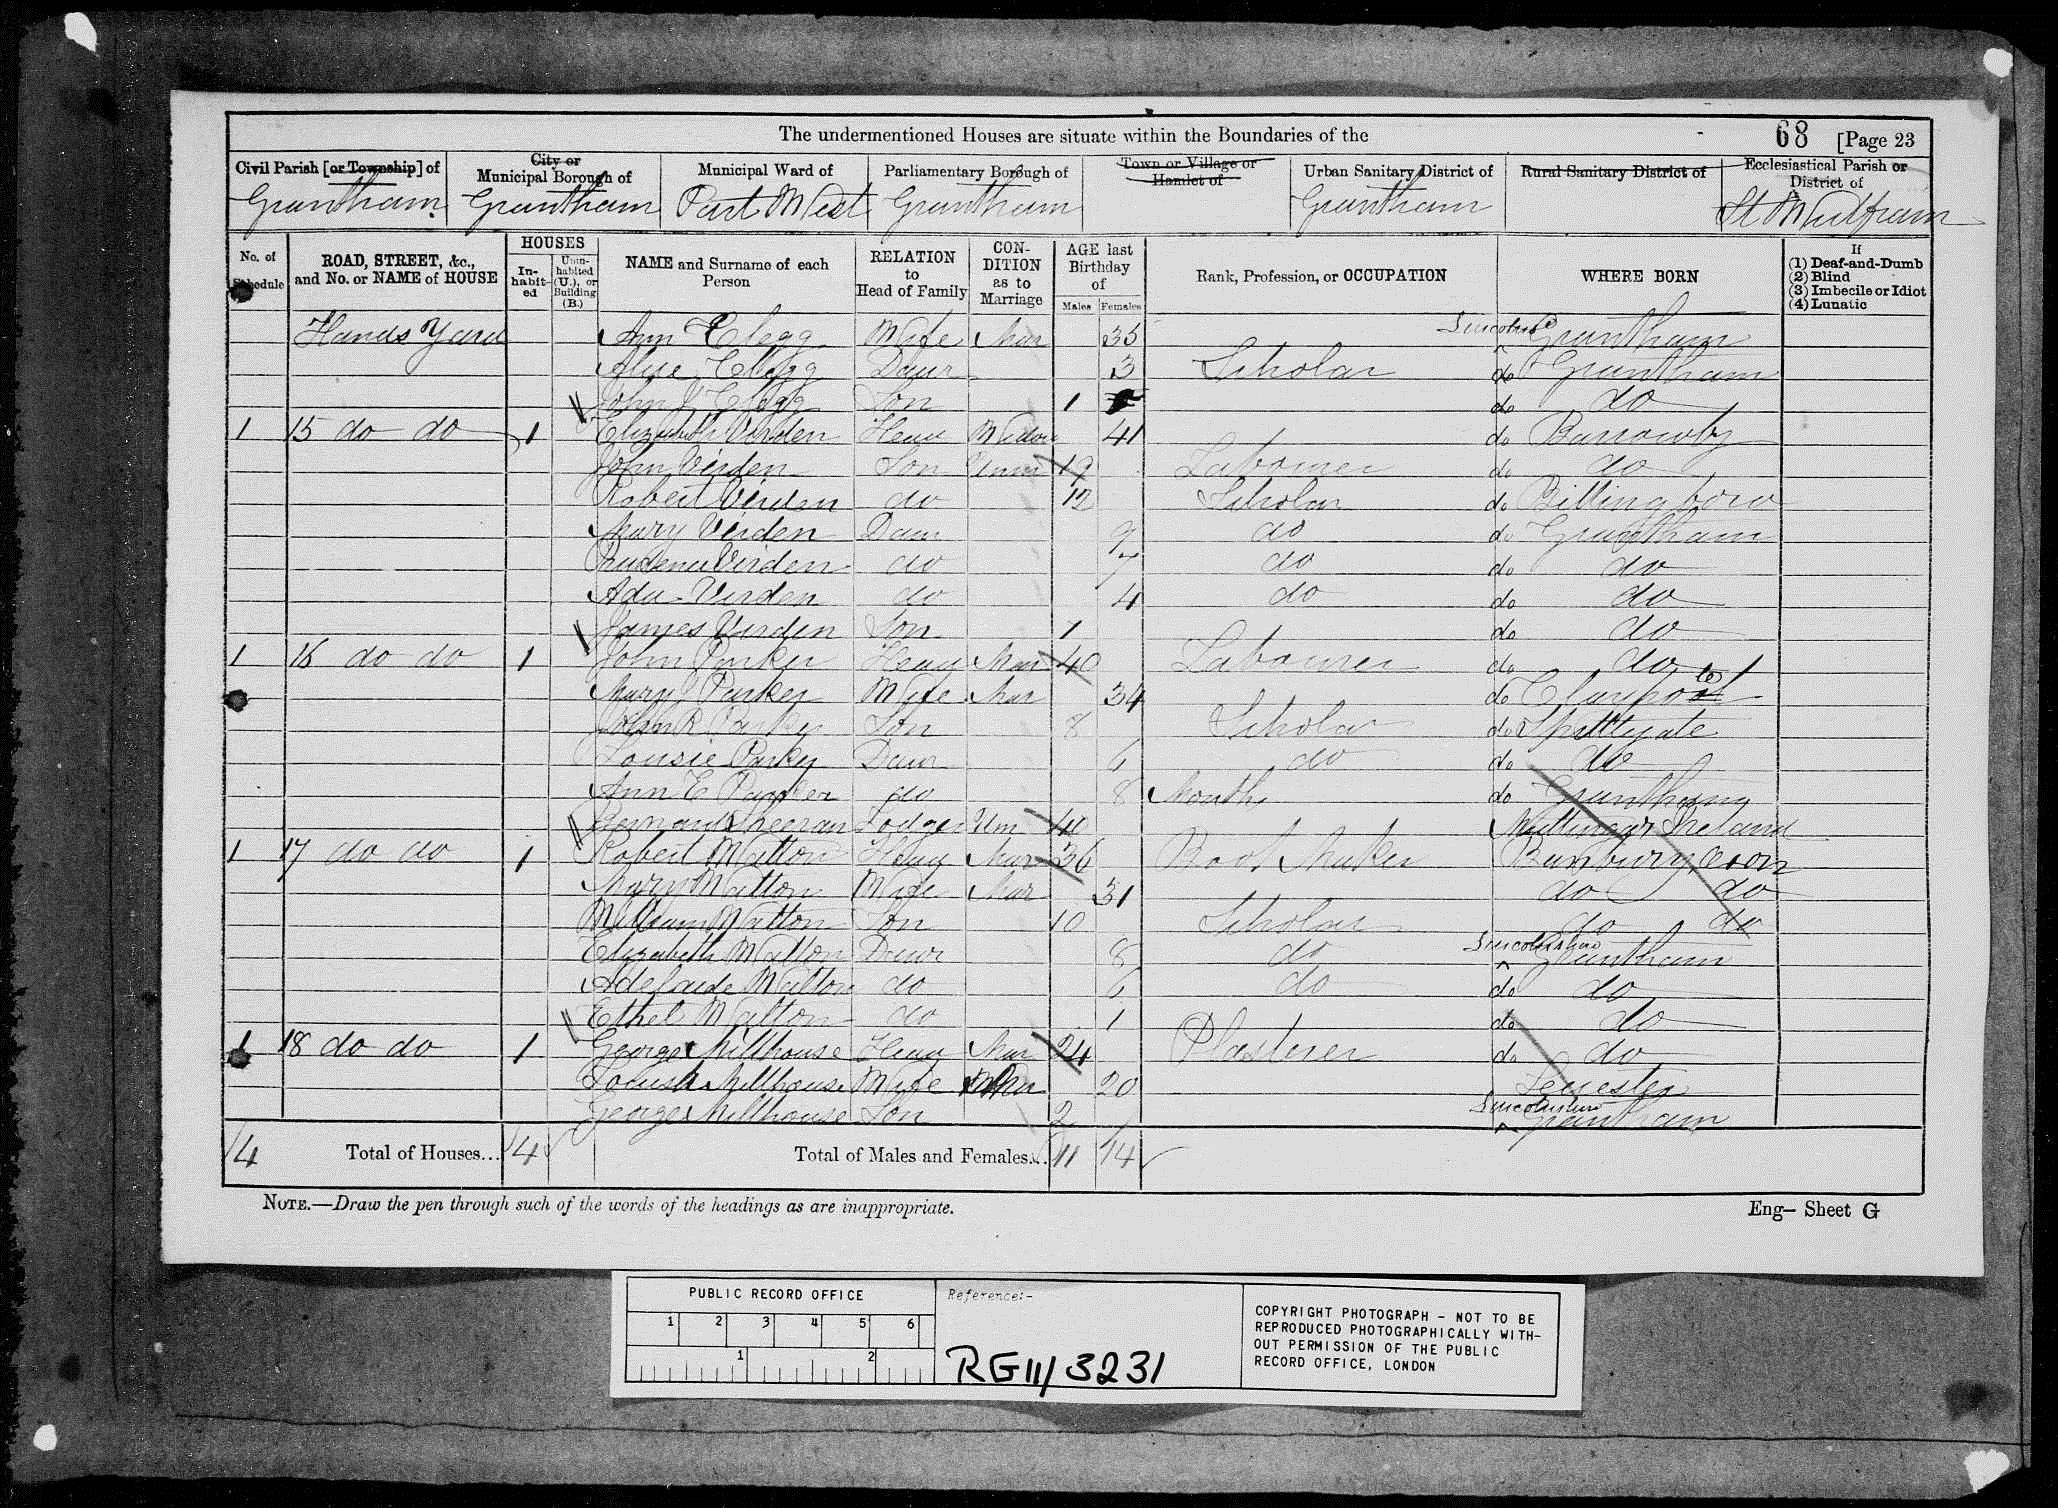 The undermentioned Houses are situate within the Boundaries of the 68 [Page 23
Civil Parish [or Township] of City or Municipal Borough of Municipal Ward of Parliamentary Borough of Town or Village or Hamlet of Urban Sanitary District of Rural Sanitary District of Ecclesiastical Parish or District of
Grantham Grantham Part West Grantham Grantham St Wulfram
No. of Schedule ROAD, STREET, &c., and No. or NAME of HOUSE HOUSES Inhabited Uninhabited (U.), or Building (B.) NAME and Surname of each Person RELATION to Head of Family CONDITION as to Marriage AGE last Birthday of Males Females Rank, Profession, or OCCUPATION WHERE BORN If (1) Deaf-and-Dumb (2) Blind (3) Imbecile or Idiot (4) Lunatic
Hands Yard Ann Clegg Wife Mar 35 Grantham
Alice Clegg Daur 3 Scholar do Grantham
John J Clegg Son 1 do do
1 15 do do 1 Elizabeth Virden Head Widow 41 do Barrowby
John Virden Son Unm 19 Labourer do do
Robert Virden do 12 Scholar do Billingboro
Mary Virden Daur 9 do do Grantham
Virden do 7 do do do
Ada Virden do 4 do do do
James Virden Son 1 do do
1 16 do do 1 John Parker Head Mar 40 Labourer do do
Mary Parker Wife Mar 34 do
John R Parker Son 8 Scholar do Spittlegate
Lousie Parker Daur 6 do do do
Ann E Parker do 8 Months do Grantham
Lodger Unm 40 Mullingar Ireland
1 17 do do 1 Robert Walton Head Mar 36 Boot Maker Banbury Oxon
Mary Walton Wife Mar 31 do do
William Walton Son 10 Scholar do do
Elizabeth Walton Daur 8 do Lincolnshire Grantham
Adelaide Walton do 6 do do do
Ethel Walton do 1 do do
1 18 do do 1 George Millhouse Head Mar 24 Plasterer do do
Millhouse Wife Mar 20 Leicester
George Millhouse Son 2 Lincolnshire Grantham
4 Total of Houses... 4 Total of Males and Females... 11 14
NOTE.—Draw the pen through such of the words of the headings as are inappropriate. Eng— Sheet G
PUBLIC RECORD OFFICE
1 2 3 4 5 6
1 2
Reference:-
RG11/3231
COPYRIGHT PHOTOGRAPH – NOT TO BE
REPRODUCED PHOTOGRAPHICALLY WITH-
OUT PERMISSION OF THE PUBLIC
RECORD OFFICE, LONDON